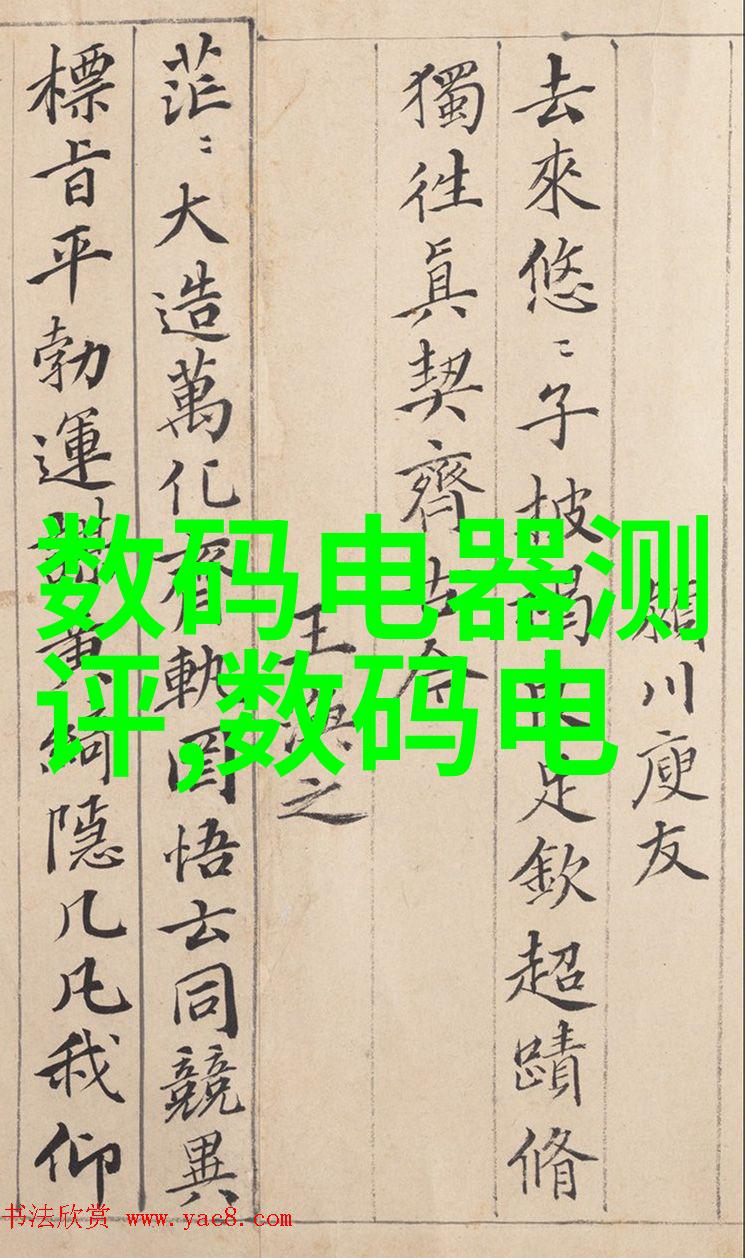 川庾友
去來悠〻子披足欽超蹟脩
獨徃眞契齊古今
王渙之
茫〻大造萬化齊軌罔悟玄同競異
標旨平勃運黃綺隱几凡我仰
数码电器测
评,数码电
书法欣赏 www.yac8.com